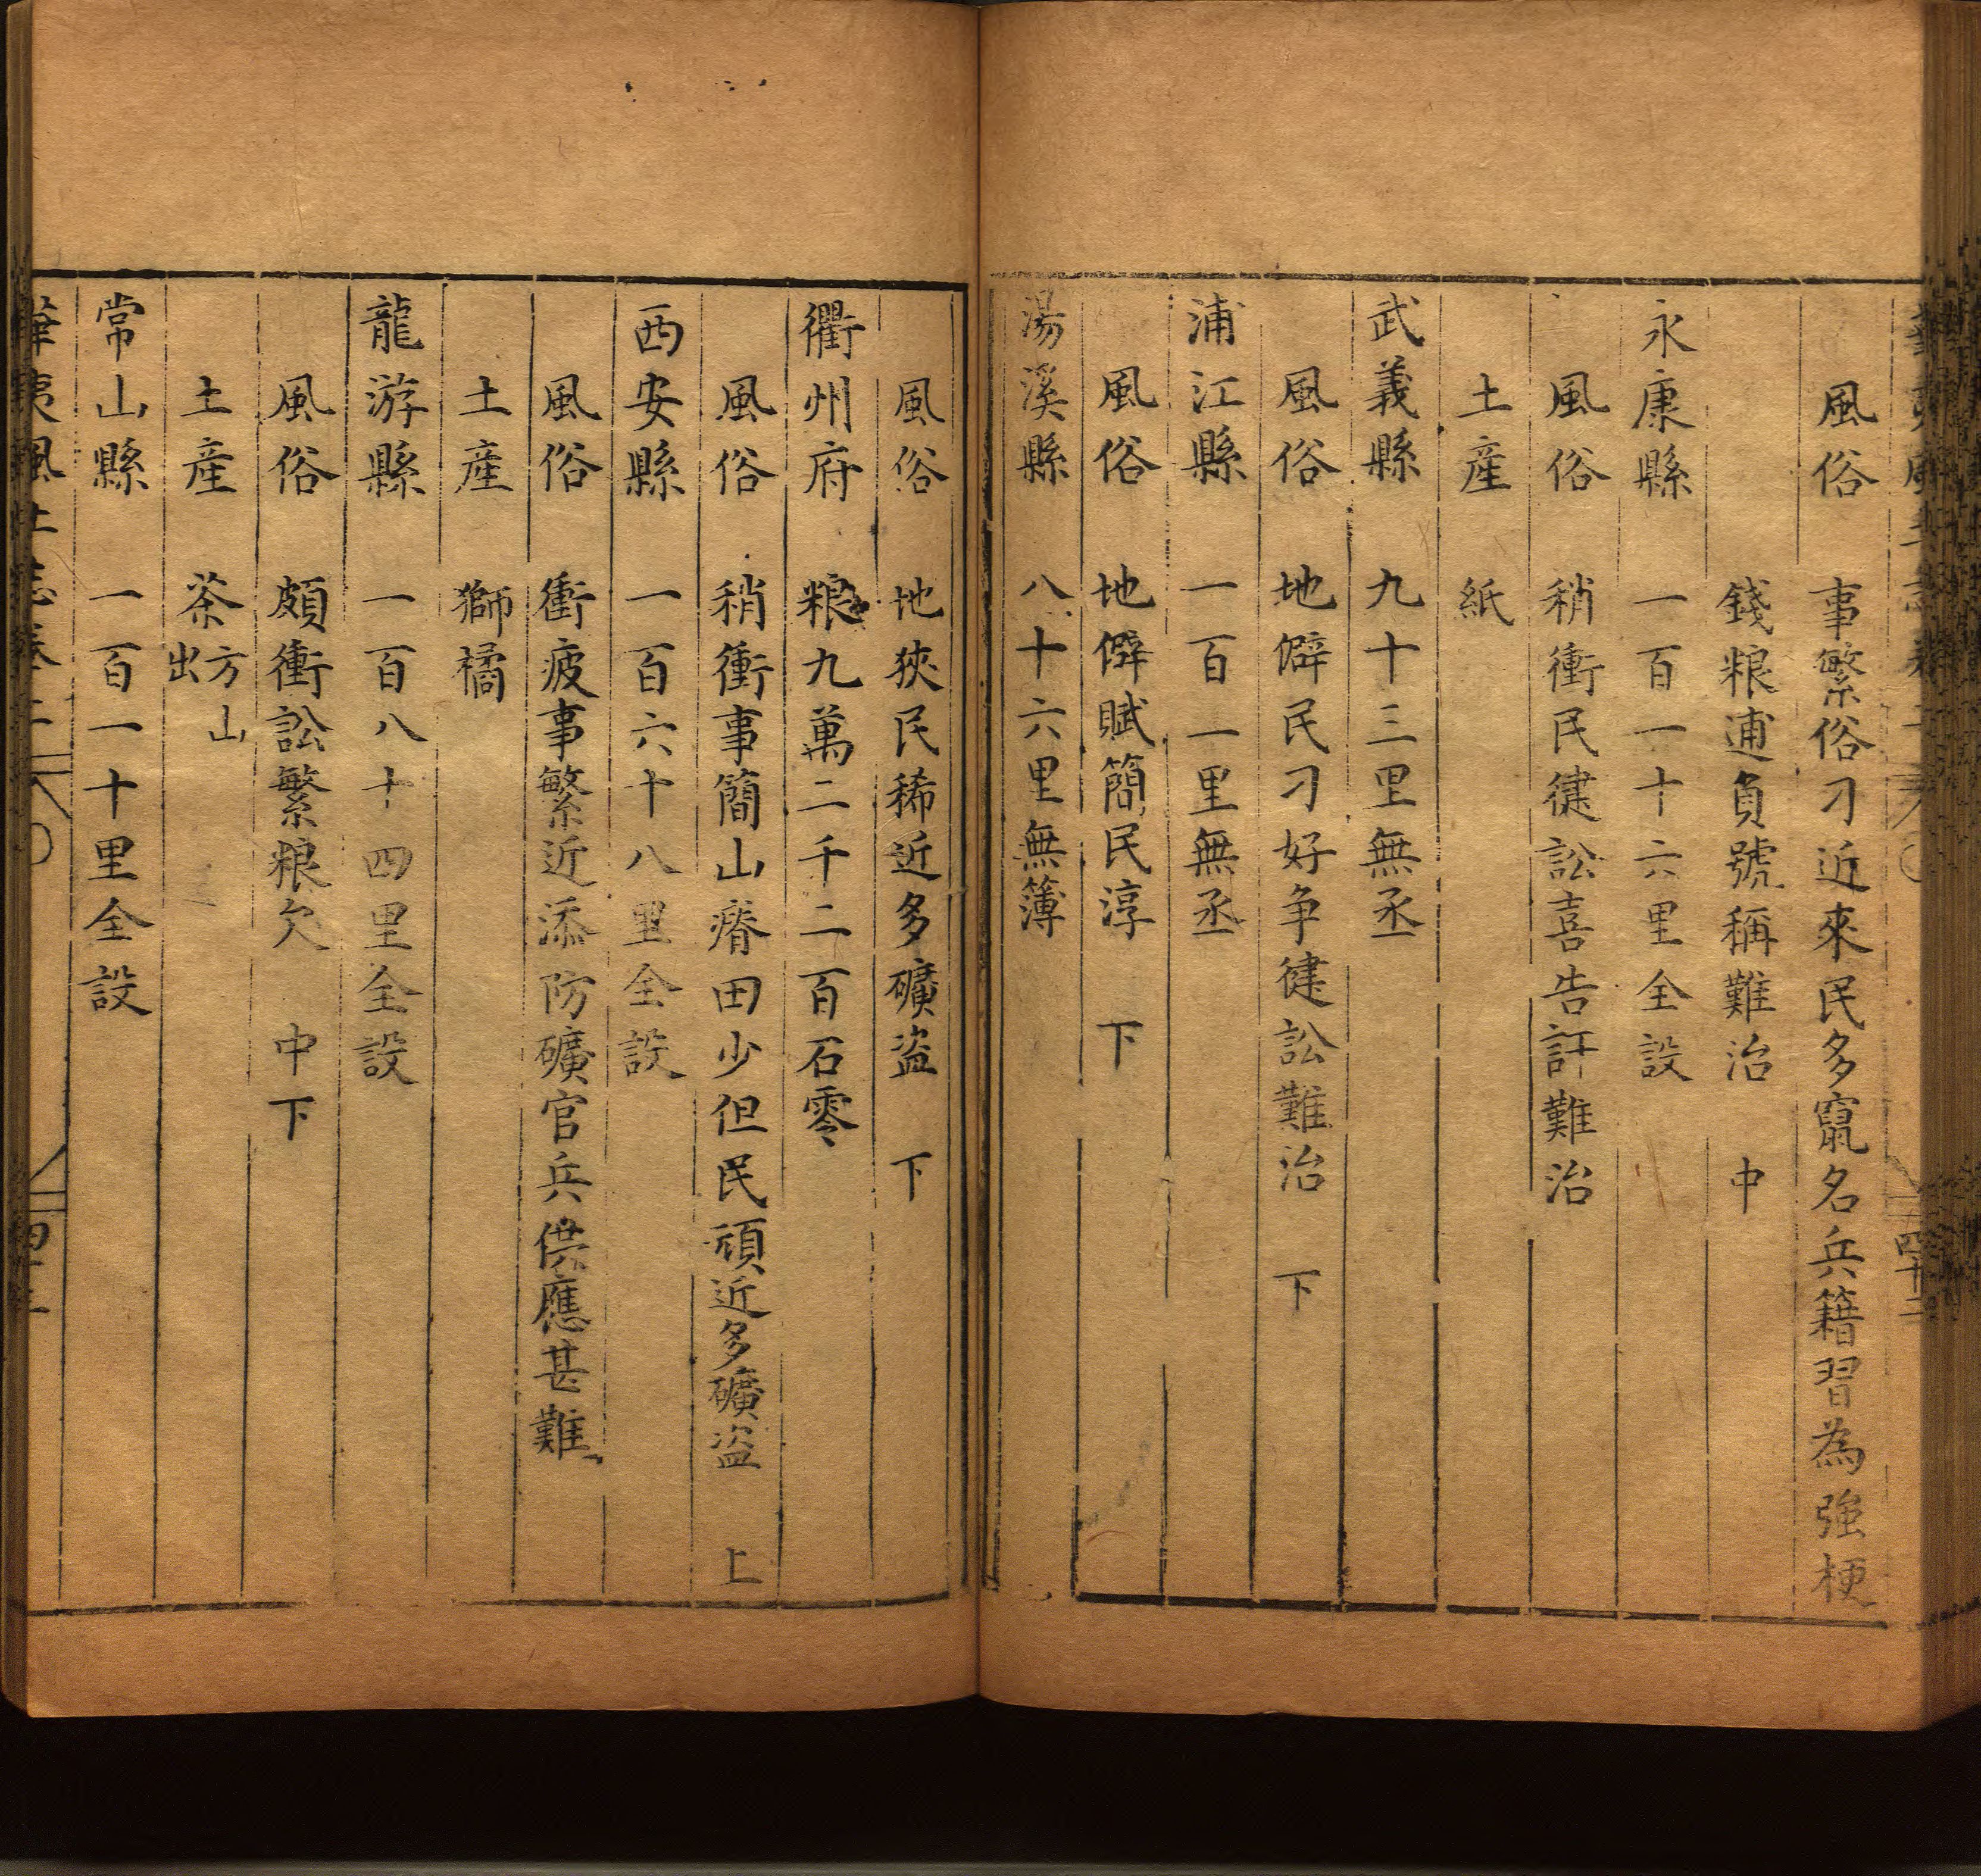 風俗 事繁俗刁近來民多竄名兵籍習為強梗
錢粮逋負號稱難治 中
永康縣 一百一十六里全設
風俗 稍衝民健訟喜告訐難治
土產 紙
武義縣 九十三里無丞
風俗 地僻民刁好爭健訟難治 下
浦江縣 一百一里無丞
風俗 地僻賦簡民淳 下
湯溪縣 八十六里無簿
風俗 地狹民稀近多礦盗 下
衢州府 粮九萬二千二百石零
風俗 稍衝事簡山瘠田少但民頑近多礦盗 上
西安縣 一百六十八里全設
風俗 衝疲事繁近添防礦官兵供應甚難
土產 獅橘
龍游縣 一百八十四里全設
風俗 頗衝訟繁粮欠 中下
土產 茶方山出
常山縣 一百一十里全設
華夷風土志卷二